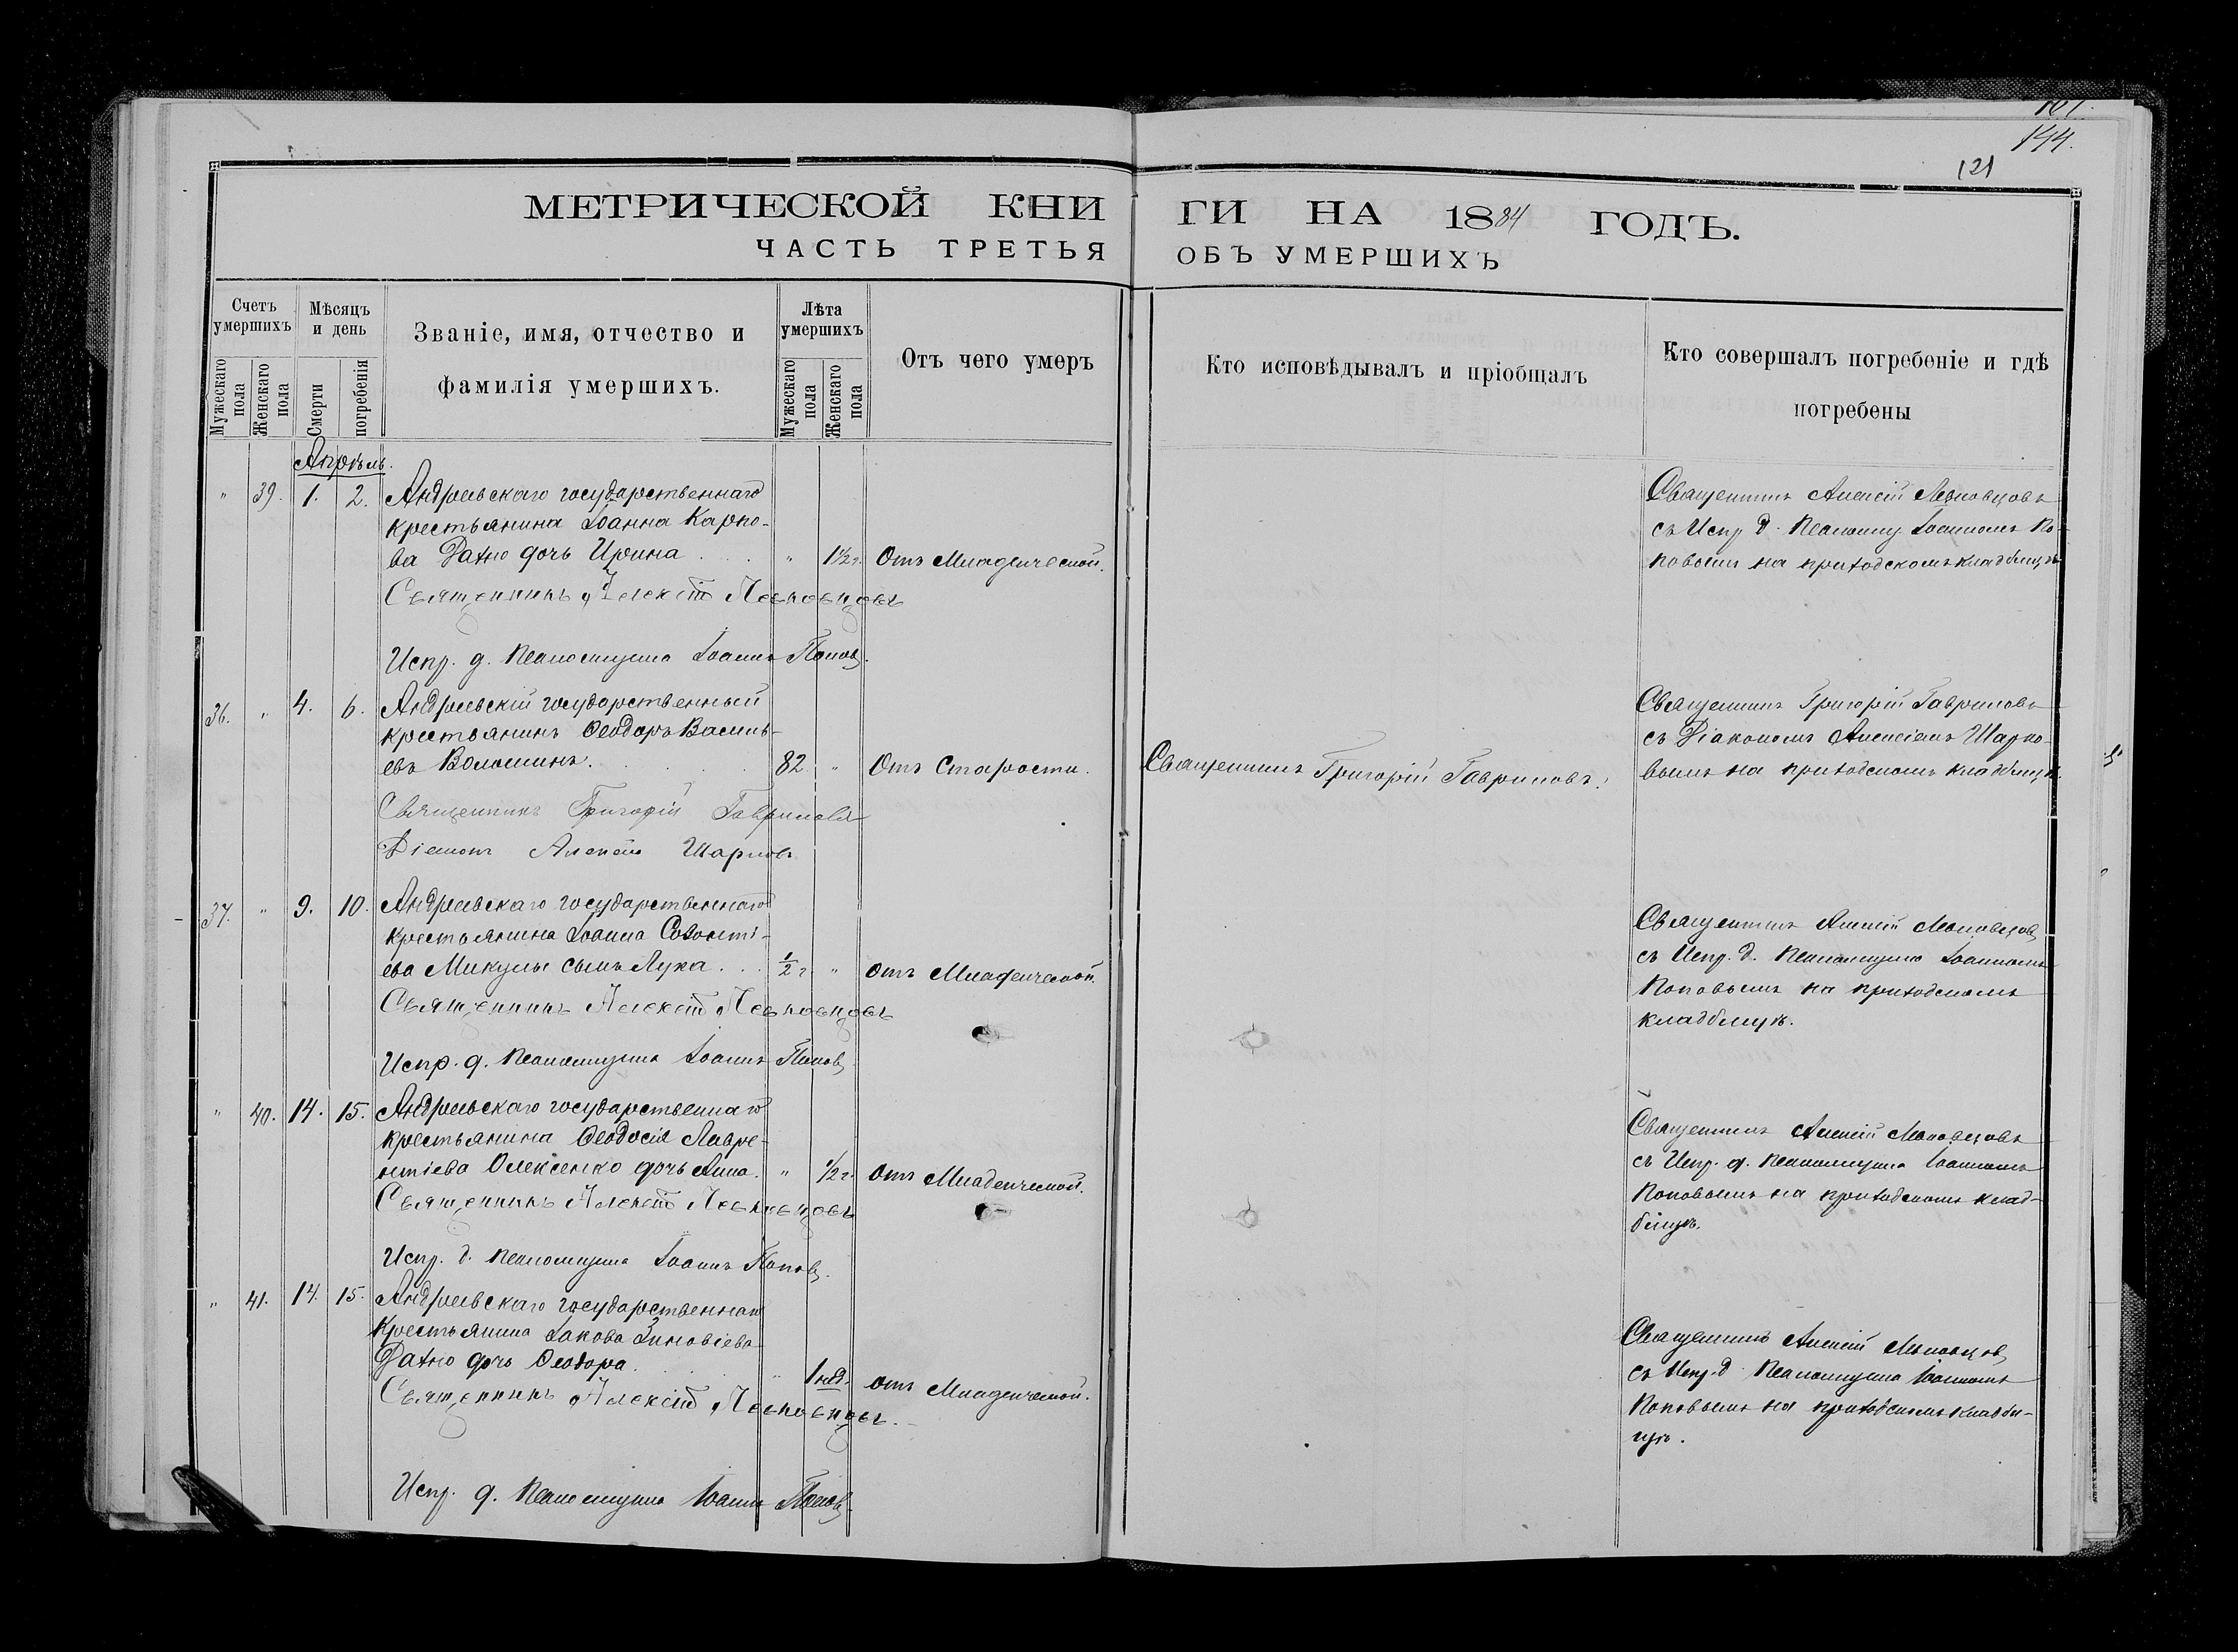 144.
121
МЕТРИЧЕСКОЙ КНИ ГИ НА 1884 ГОДЪ.
ЧАСТЬ ТРЕТЬЯ ОБЪ УМЕРШИХЪ
Счетъ умершихъ
Мужескаго пола
Женскаго пола
Мѣсяцъ и день
Смерти
погребенія
Званіе, имя, отчество и
фамилія умершихъ.
Лѣта умершихъ
Мужескаго пола
Женскаго пола
Отъ чего умеръ
Кто исповѣдывалъ и пріобщалъ
Кто совершалъ погребеніе и гдѣ
погребены
Апрѣль.
" 39. 1. 2. Андреевскаго государственнаго
крестьянина Іоанна Карпо-
ва Дахно дочь Ирина . . . " 1½ г. Отъ Младенческой.
Священникъ Алексій Левковцовъ
Испр. д. Псаломщика Іоаннъ Поповъ.
Священникъ Алексій Левковцовъ
съ Испр д. Псаломщ. Іоанномъ По-
повымъ на приходскомъ кладбищѣ
36. " 4. 6. Андреевскій государственный
крестьянинъ Ѳеодоръ Василь-
евъ Волошинъ. . . . 82 " Отъ Старости.
Священникъ Григорій Гавриловъ
Діаконъ Алексій Шарковъ
Священникъ Григорій Гавриловъ.
Священникъ Григорій Гавриловъ
съ Діакономъ Алексіемъ Шарко-
вымъ на приходскомъ кладбищѣ.
37. " 9. 10. Андреевскаго государственнаго
крестьянина Іоанна Созонті-
ева Микулы сынъ Лука . . . ½ г. " Отъ Младенческой.
Священникъ Алексій Левковцовъ
Испр. д. Псаломщика Іоаннъ Поповъ
Священникъ Алексій Левковцовъ
съ Испр. д. Псаломщика Іоанномъ
Поповымъ на приходскомъ
кладбищѣ.
" 40. 14. 15. Андреевскаго государственнаго
крестьянина Ѳеодосія Лавре-
нтіева Олексенко дочь Анна. " ½ г. Отъ Младенческой.
Священникъ Алексій Левковцовъ
Испр. д. Псаломщика Іоаннъ Поповъ.
Священникъ Алексій Левковцовъ
съ Испр. д. Псаломщика Іоанномъ
Поповымъ на приходскомъ клад-
бищѣ.
" 41. 14. 15. Андреевскаго государственнаго
крестьянина Іакова Зиновіева
Дахно дочь Ѳеодора. . . " 1 нед. отъ Младенческой.
Священникъ Алексій Левковцовъ.
Испр. д. Псаломщика Іоаннъ Поповъ
Священникъ Алексій Левковцовъ
съ Испр. д Псаломщика Іоанномъ
Поповымъ на приходскомъ кладби-
щѣ.